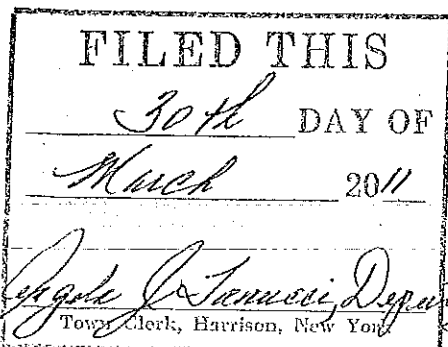 FILED THIS
30th DAY OF
March 2011
J
Town Clerk, Harrison, New York